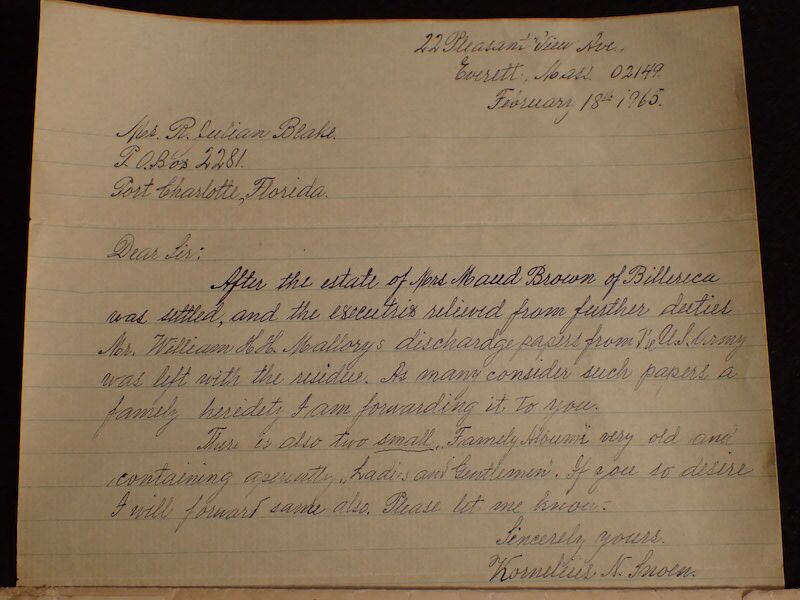 22 Pleasant View Ave,
Everett, Mass. 02149.
February 18th 1965.
Mr. R. Julian Blake.
P.O. Box 2281.
Port Charlotte, Florida.
Dear Sir:
After the estate of Mrs Maud Brown of Billerica
was settled, and the executrix relieved from further duties
Mr. William H.H. Mallory's dischardge papers from U.S. Army
was left with the residue. As many consider such papers a
famely heridety I am forwarding it to you.
There is also two small, "Famely Albums" very old and
containing aperently "Ladies and Gentlemen". If you so desire
I will forward same also. Please let me know.-
Sincerely yours.
Kornelius N. Snoen.